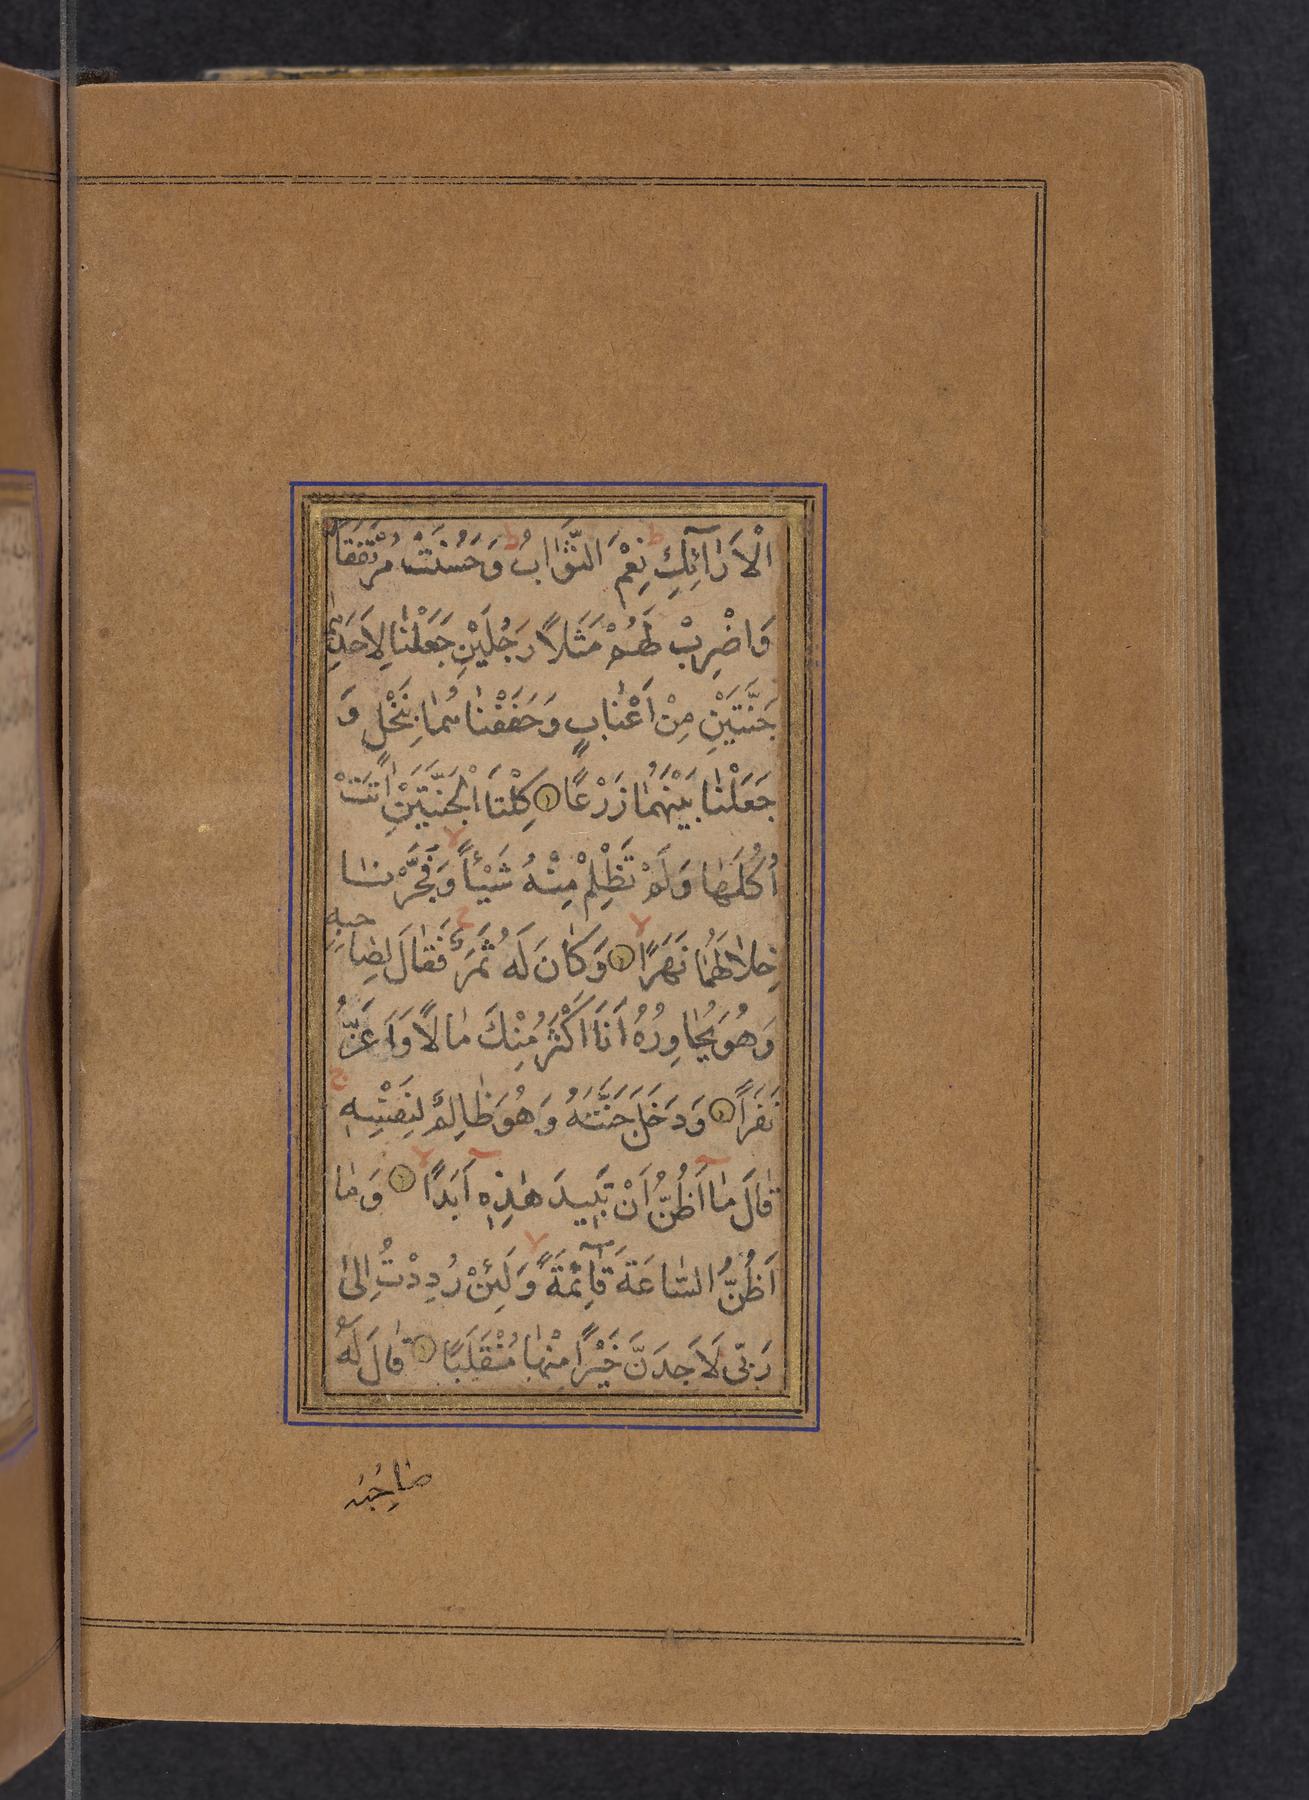 الْاَرَآئِكِ نِعْمَ الثَّوَابُ وَحَسُنَتْ مُرْتَفَقًا
وَاضْرِبْ لَهُمْ مَثَلًا رَجُلَيْنِ جَعَلْنَا لِاَحَدِهِمَا
جَنَّتَيْنِ مِنْ اَعْنَابٍ وَحَفَفْنَاهُمَا بِنَخْلٍ وَ
جَعَلْنَا بَيْنَهُمَا زَرْعًا كِلْتَا الْجَنَّتَيْنِ اٰتَتْ
اُكُلَهَا وَلَمْ تَظْلِمْ مِنْهُ شَيْئًا وَفَجَّرْنَا
خِلَالَهُمَا نَهَرًا وَكَانَ لَهُ ثَمَرٌ فَقَالَ لِصَاحِبِهِ
وَهُوَ يُحَاوِرُهُ اَنَا اَكْثَرُ مِنْكَ مَالًا وَاَعَزُّ
نَفَرًا وَدَخَلَ جَنَّتَهُ وَهُوَ ظَالِمٌ لِنَفْسِهِ
قَالَ مَا اَظُنُّ اَنْ تَبِيدَ هٰذِهِ اَبَدًا وَمَا
اَظُنُّ السَّاعَةَ قَآئِمَةً وَلَئِنْ رُدِدْتُ اِلىٰ
رَبّى لَاَجِدَنَّ خَيْرًا مِنْهَا مُنْقَلَبًا قَالَ لَهُ
صَاحِبُهُ